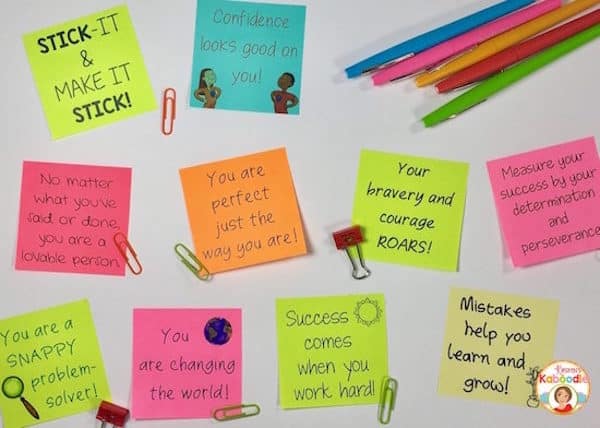 STICK-IT
&
MAKE IT
STICK!
Confidence
looks good on
you!
No matter
what you've
said or done,
you are a
lovable person.
You are
perfect
just the
way you are!
Your
bravery and
courage
ROARS!
Measure your
success by your
determination
and
perseverance
You are a
SNAPPY
problem-
solver!
You
are changing
the world!
Success
comes
when you
work hard!
Mistakes
help you
learn and
grow!
Kaboodle